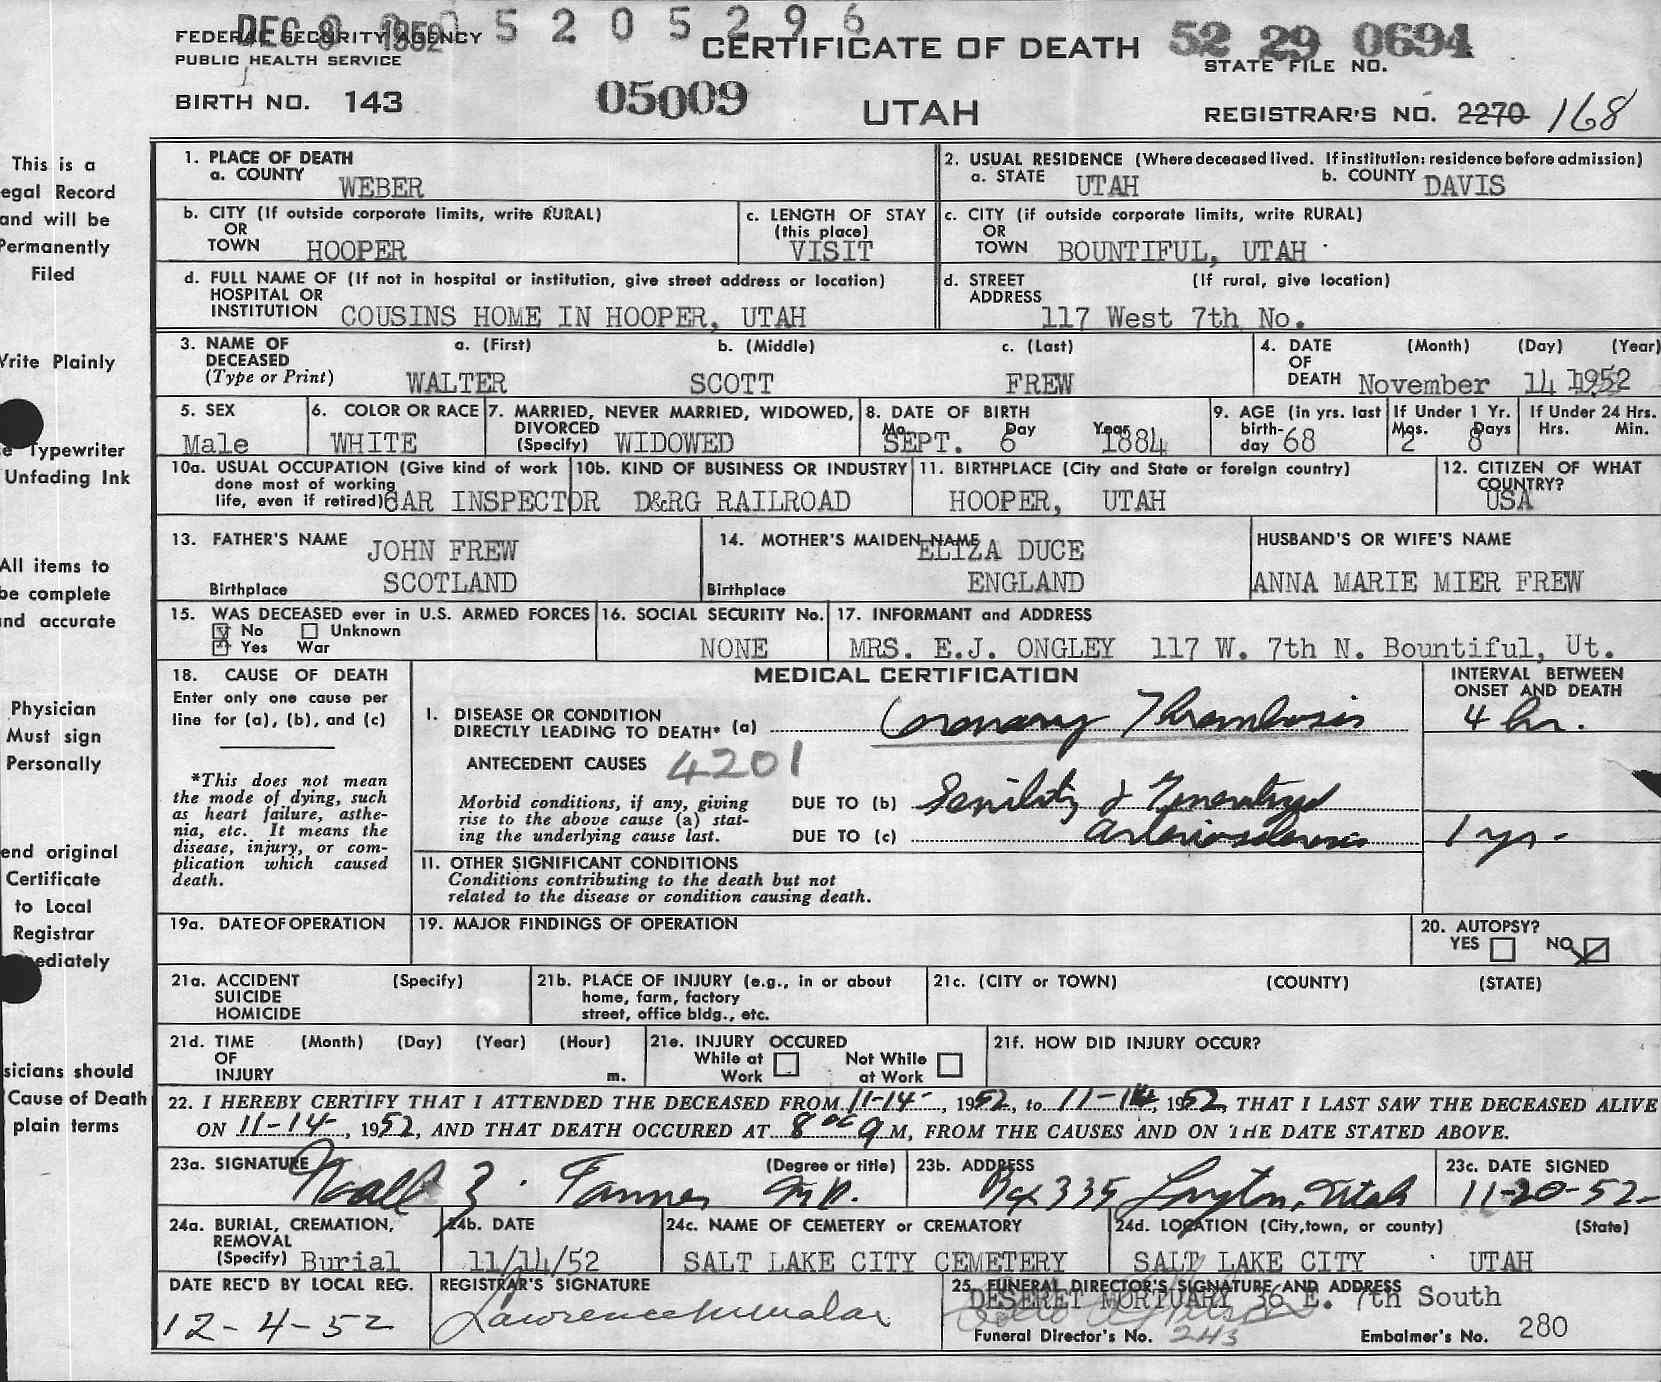 DEC 8 1952 5 2 0 5 2 9 6
FEDERAL SECURITY AGENCY
PUBLIC HEALTH SERVICE
CERTIFICATE OF DEATH
52 29 0694
STATE FILE NO.
BIRTH NO. 143
05009
UTAH
REGISTRAR'S NO. 2270 168
This is a
egal Record
and will be
Permanently
Filed
Write Plainly
e Typewriter
Unfading Ink
All items to
be complete
and accurate
Physician
Must sign
Personally
end original
Certificate
to Local
Registrar
ediately
sicians should
Cause of Death
plain terms
1. PLACE OF DEATH
a. COUNTY WEBER
2. USUAL RESIDENCE (Where deceased lived. If institution: residence before admission)
a. STATE UTAH b. COUNTY DAVIS
b. CITY (If outside corporate limits, write RURAL)
OR
TOWN HOOPER
c. LENGTH OF STAY
(this place)
VISIT
c. CITY (if outside corporate limits, write RURAL)
OR
TOWN BOUNTIFUL, UTAH
d. FULL NAME OF (If not in hospital or institution, give street address or location)
HOSPITAL OR
INSTITUTION COUSINS HOME IN HOOPER, UTAH
d. STREET (If rural, give location)
ADDRESS
117 West 7th No.
3. NAME OF DECEASED (Type or Print)
a. (First) b. (Middle) c. (Last)
WALTER SCOTT FREW
4. DATE OF DEATH (Month) (Day) (Year)
November 14 1952
5. SEX
Male
6. COLOR OR RACE
WHITE
7. MARRIED, NEVER MARRIED, WIDOWED,
DIVORCED
(Specify) WIDOWED
8. DATE OF BIRTH
Mo. Day Year
SEPT. 6 1884
9. AGE (in yrs. last
birth-
day 68
If Under 1 Yr.
Mos. Days
2 8
If Under 24 Hrs.
Hrs. Min.
10a. USUAL OCCUPATION (Give kind of work
done most of working
life, even if retired) CAR INSPECTOR
10b. KIND OF BUSINESS OR INDUSTRY
D&RG RAILROAD
11. BIRTHPLACE (City and State or foreign country)
HOOPER, UTAH
12. CITIZEN OF WHAT
COUNTRY?
USA
13. FATHER'S NAME JOHN FREW
Birthplace SCOTLAND
14. MOTHER'S MAIDEN NAME ELIZA DUCE
Birthplace ENGLAND
HUSBAND'S OR WIFE'S NAME
ANNA MARIE MIER FREW
15. WAS DECEASED ever in U.S. ARMED FORCES
No Unknown
Yes War
16. SOCIAL SECURITY No.
NONE
17. INFORMANT and ADDRESS
MRS. E.J. ONGLEY 117 W. 7th N. Bountiful, Ut.
18. CAUSE OF DEATH
Enter only one cause per
line for (a), (b), and (c)
*This does not mean
the mode of dying, such
as heart failure, asthe-
nia, etc. It means the
disease, injury, or com-
plication which caused
death.
MEDICAL CERTIFICATION
INTERVAL BETWEEN
ONSET AND DEATH
I. DISEASE OR CONDITION
DIRECTLY LEADING TO DEATH* (a) Coronary Thrombosis 4 hr.
ANTECEDENT CAUSES 4201
Morbid conditions, if any, giving
rise to the above cause (a) stat-
ing the underlying cause last.
DUE TO (b) Senility & Generalized
DUE TO (c) arteriosclerosis 1 yr.
II. OTHER SIGNIFICANT CONDITIONS
Conditions contributing to the death but not
related to the disease or condition causing death.
19a. DATE OF OPERATION
19. MAJOR FINDINGS OF OPERATION
20. AUTOPSY?
YES NO
21a. ACCIDENT (Specify)
SUICIDE
HOMICIDE
21b. PLACE OF INJURY (e.g., in or about
home, farm, factory
street, office bldg., etc.
21c. (CITY or TOWN) (COUNTY) (STATE)
21d. TIME (Month) (Day) (Year) (Hour)
OF
INJURY m.
21e. INJURY OCCURED
While at Work Not While at Work
21f. HOW DID INJURY OCCUR?
22. I HEREBY CERTIFY THAT I ATTENDED THE DECEASED FROM 11-14-, 1952, to 11-14, 1952, THAT I LAST SAW THE DECEASED ALIVE
ON 11-14-, 1952, AND THAT DEATH OCCURED AT 8 00 a M, FROM THE CAUSES AND ON THE DATE STATED ABOVE.
23a. SIGNATURE (Degree or title)
Noall Z. Tanner M.D.
23b. ADDRESS
Bx 335 Layton, Utah
23c. DATE SIGNED
11-20-52
24a. BURIAL, CREMATION,
REMOVAL
(Specify) Burial
24b. DATE
11/14/52
24c. NAME OF CEMETERY or CREMATORY
SALT LAKE CITY CEMETERY
24d. LOCATION (City, town, or county) (State)
SALT LAKE CITY UTAH
DATE REC'D BY LOCAL REG.
12-4-52
REGISTRAR'S SIGNATURE
Lawrence
25. FUNERAL DIRECTOR'S SIGNATURE AND ADDRESS
DESERET MORTUARY 36 E. 7th South
Funeral Director's No. 243 Embalmer's No. 280